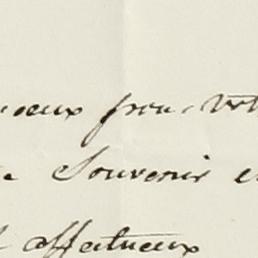 voeux pour votr
Souvenir e
affectueux